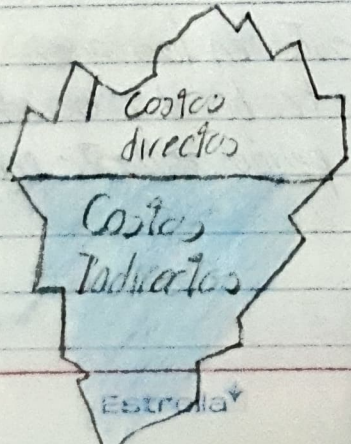 Costos
directos
Costos
Indirectos
Estrella